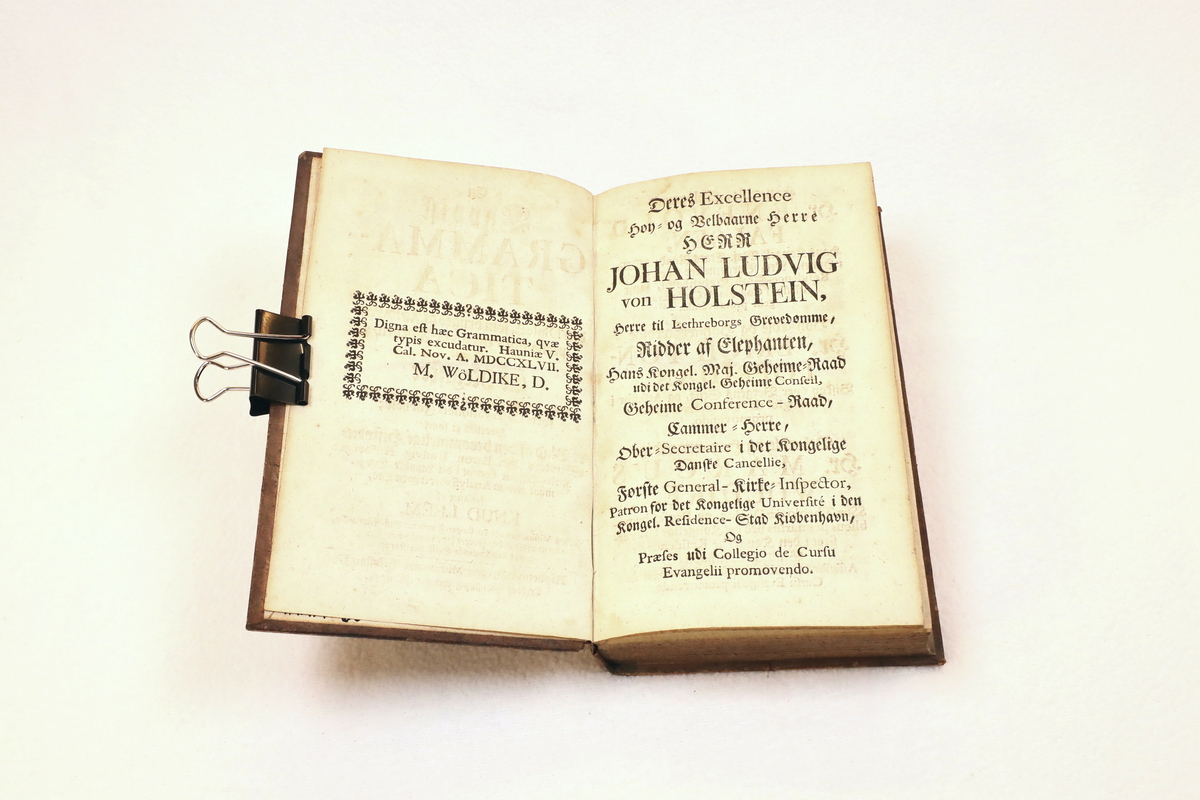 Digna est hæc Grammatica, qvæ
typis excudatur. Hauniæ V.
Cal. Nov. A. MDCCXLVII.
M. WöLDIKE, D.
Deres Excellence
Høy- og Velbaarne Herre
HERR
JOHAN LUDVIG
von HOLSTEIN,
Herre til Lethreborgs Grevedømme,
Ridder af Elephanten,
Hans Kongel. Maj. Geheime-Raad
udi det Kongel. Geheime Conseil,
Geheime Conference-Raad,
Cammer-Herre,
Ober-Secretaire i det Kongelige
Danske Cancellie,
Første General-Kirke-Inspector,
Patron for det Kongelige Université i den
Kongel. Residence-Stad Kiøbenhavn,
Og
Præses udi Collegio de Cursu
Evangelii promovendo.